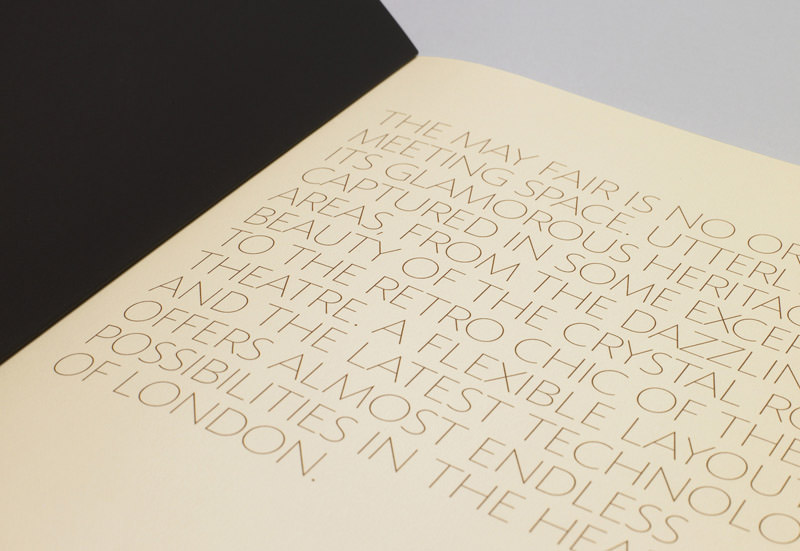 THE MAY FAIR IS NO OR
MEETING SPACE. UTTERL
ITS GLAMOROUS HERITAG
CAPTURED IN SOME EXCEP
AREAS, FROM THE DAZZLIN
BEAUTY OF THE CRYSTAL RO
TO THE RETRO CHIC OF THE
THEATRE. A FLEXIBLE LAYOUT
AND THE LATEST TECHNOLO
OFFERS ALMOST ENDLESS
POSSIBILITIES IN THE HEA
OF LONDON.